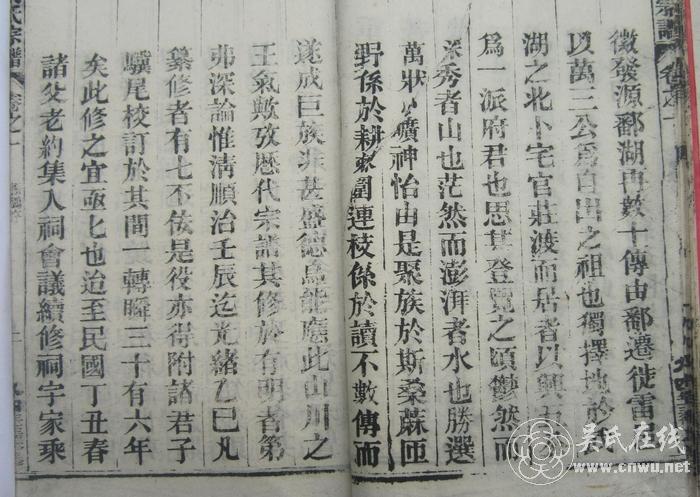 宗譜
卷之
徽發源鄱湖再數十傳由鄱遷徙雷
以萬三公為自出之祖也獨擇地於
湖之北卜宅官莊渡而居者以興
為一派府君也思其登覽之頃鬱然而
深秀者山也茫然而澎湃者水也勝選
萬狀心曠神怡由是聚族於斯桑蔴匝
野係於耕東園連枝係於讀不數傳而
遂成巨族非甚盛德烏能應此山川之
王氣歟攷歷代宗譜其修於有明者第
弗深論惟淸順治壬辰迄光緒乙巳凡
纂修者有七不佞是役亦得附諸君子
驥尾校訂於其間一轉瞬三十有六年
矣此修之宜亟亟也迨至民國丁丑春
諸父老約集入祠會議續修祠宇家乘
氏宗譜
卷之一
吴氏在线
www.cnwu.net